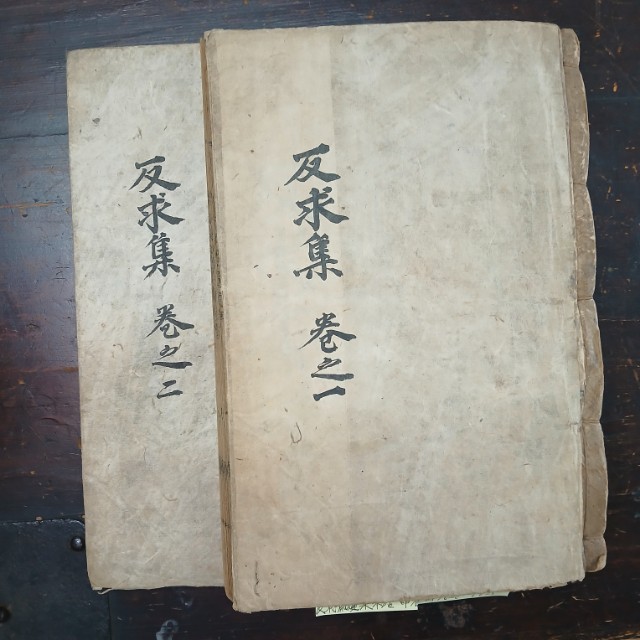 反求集 卷之一
反求集 卷之二